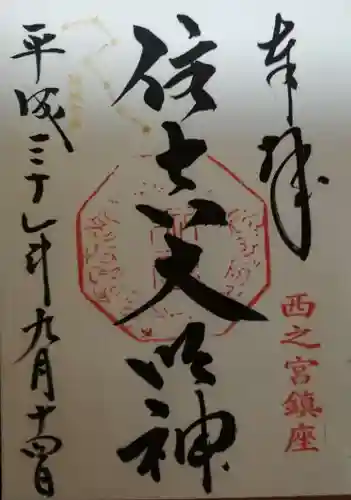 奉拝
西之宮鎮座
住吉大明神
平成三十年九月十四日